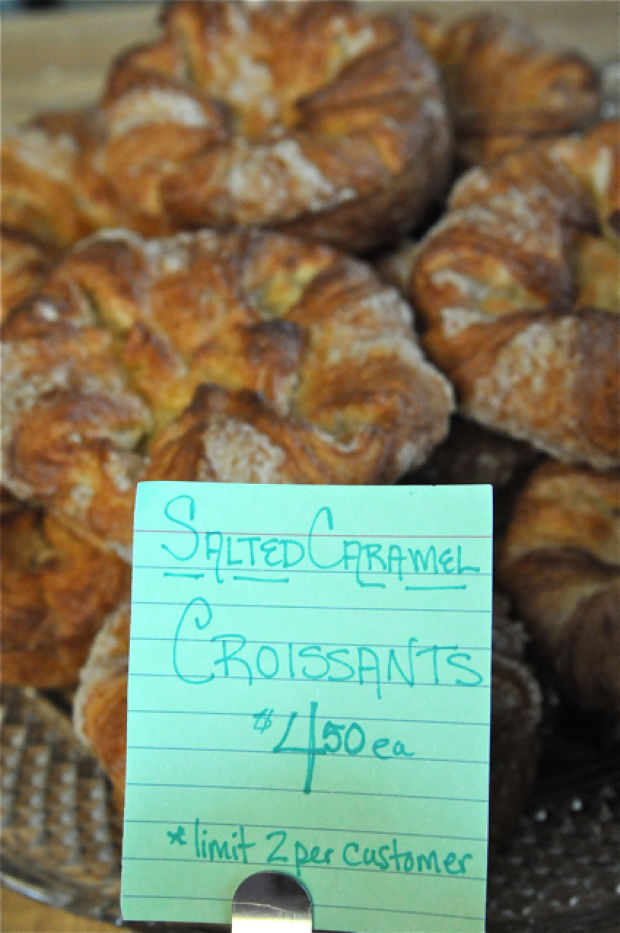 SALTED CARAMEL
CROISSANTS
$450 ea
*limit 2 per customer